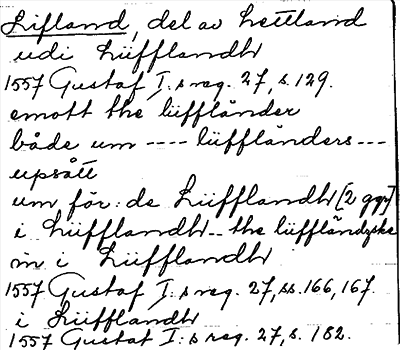 Lifland, del av Lettland
udi Lüfflandh
1557 Gustaf I:s reg. 27, s. 129.
emott the lüffländer
både um ---- lüffländers ---
upsått
um för: de Lüfflandh [2 ggr]
i Lüfflandh -- the lüffländzske
m i Lüfflandh
1557 Gustaf I:s reg. 27, ss. 166, 167.
i Lüfflandh
1557 Gustaf I:s reg. 27, s. 182.